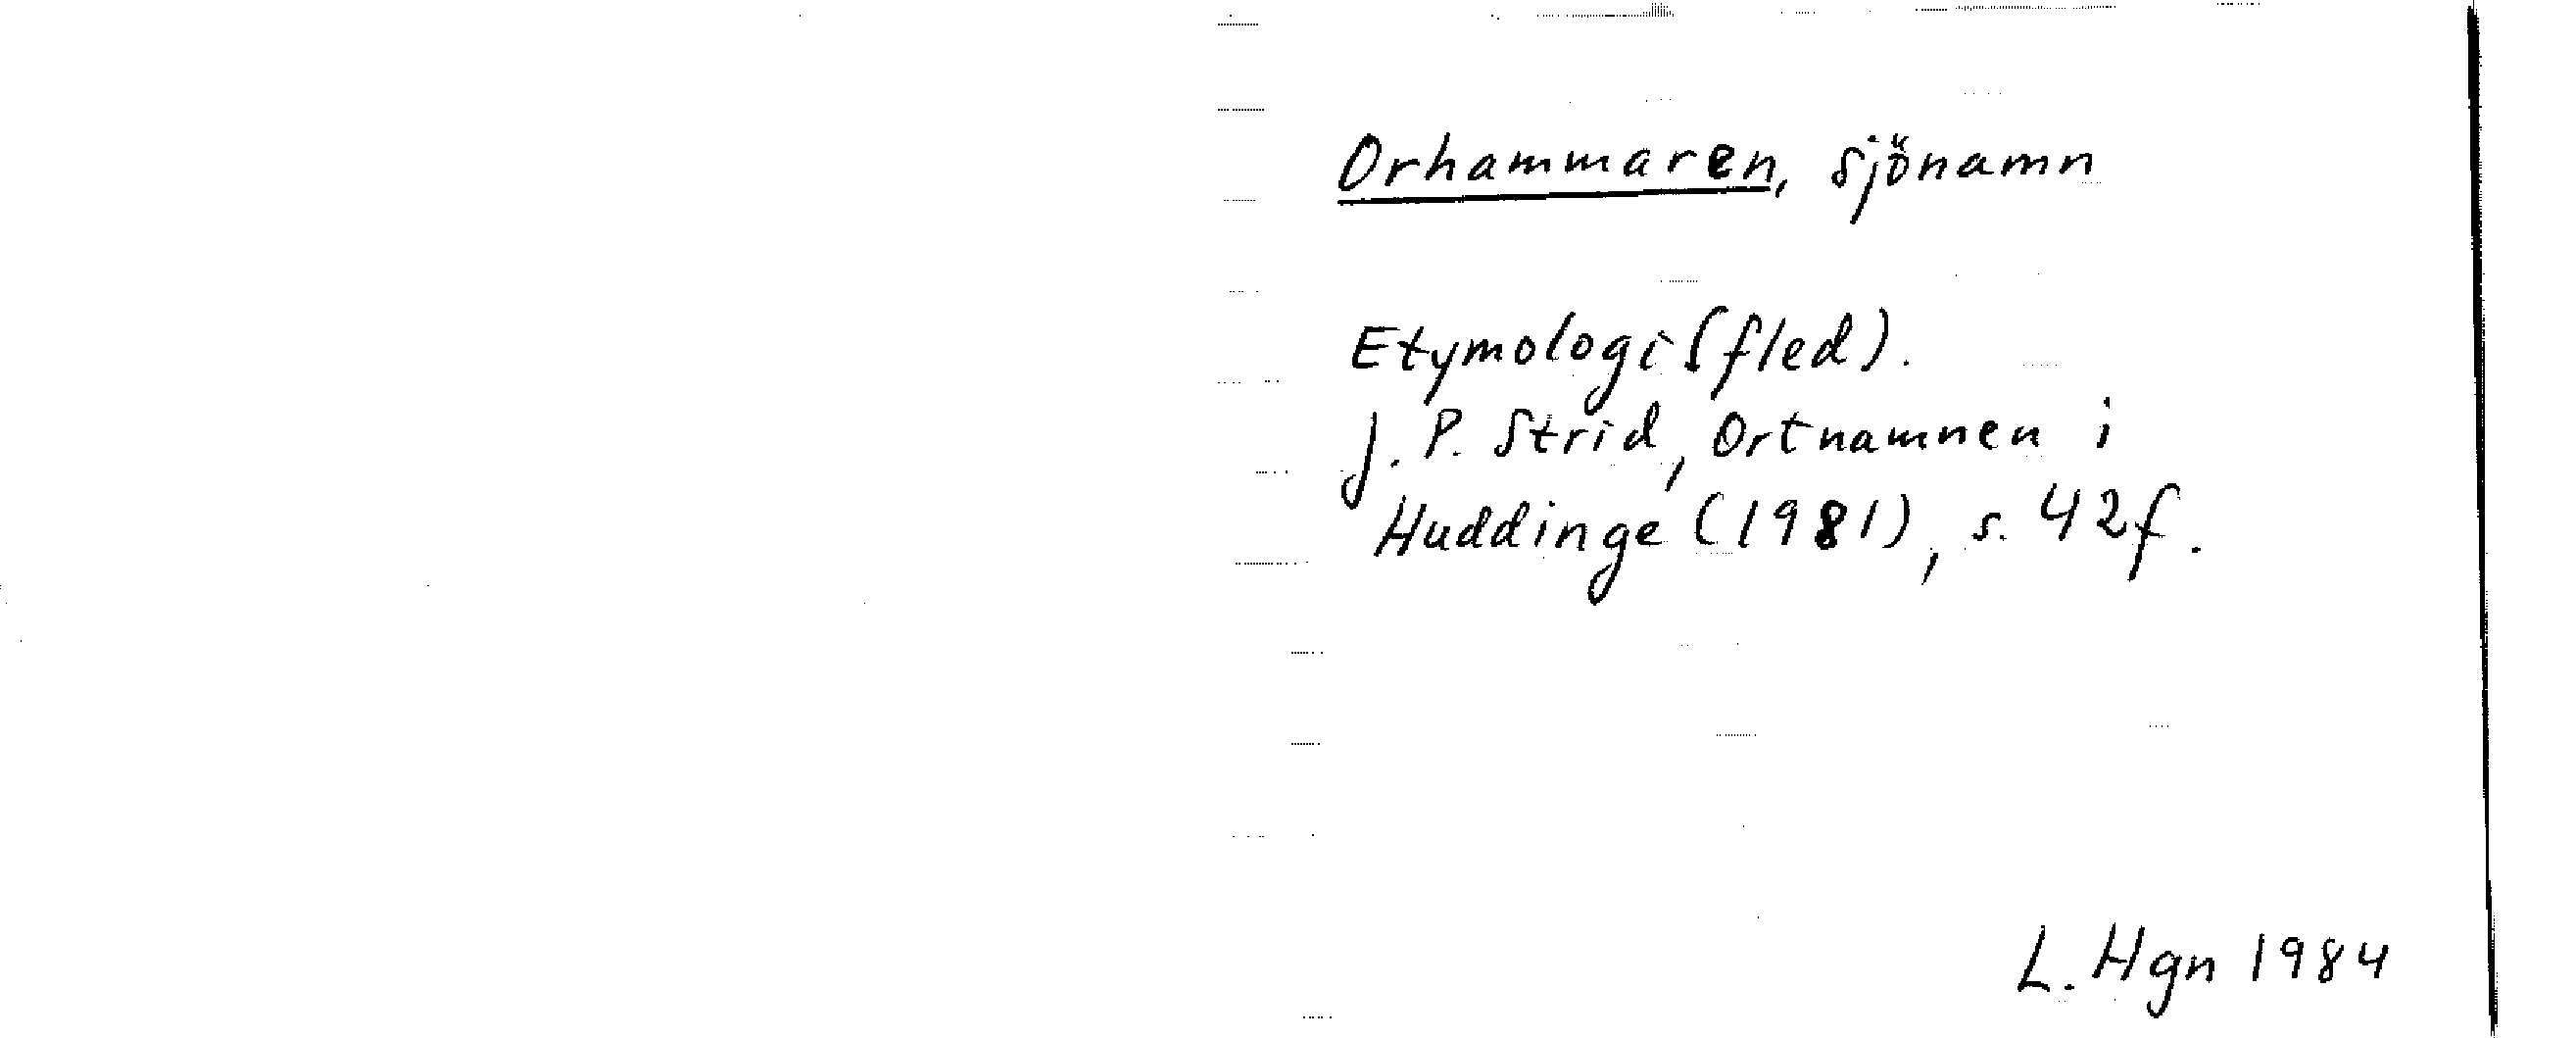 Orhammaren, sjönamn
Etymologi (fled).
J. P. Strid, Ortnamnen i
Huddinge (1981), s. 42f.
L. Hgn 1984